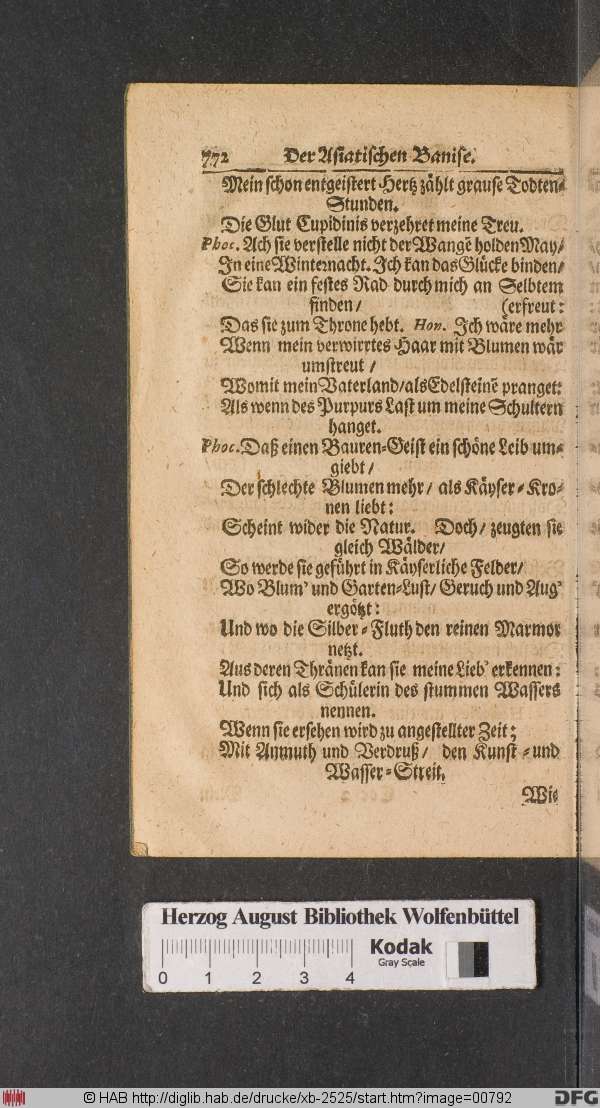 772 Der Asiatischen Banise.
Mein schon entgeistert Hertz zählt grause Todten-
Stunden.
Die Glut Cupidinis verzehret meine Treu.
Phoc. Ach sie verstelle nicht der Wangē holden May/
In eine Winternacht. Ich kan das Glücke binden/
Sie kan ein festes Rad durch mich an Selbtem
finden/ (erfreut:
Das sie zum Throne hebt. Hon. Ich wäre mehr
Wenn mein verwirrtes Haar mit Blumen wär
umstreut /
Womit mein Vaterland/als Edelsteinē pranget:
Als wenn des Purpurs Last um meine Schultern
hanget.
Phoc. Daß einen Bauren-Geist ein schöne Leib um-
giebt/
Der schlechte Blumen mehr/ als Käyser-Kro-
nen liebt:
Scheint wider die Natur. Doch/ zeugten sie
gleich Wälder/
So werde sie geführt in Käyserliche Felder/
Wo Blum' und Garten-Lust/ Geruch und Aug'
ergötzt:
Und wo die Silber-Fluth den reinen Marmor
netzt.
Aus deren Thränen kan sie meine Lieb' erkennen:
Und sich als Schülerin des stummen Wassers
nennen.
Wenn sie ersehen wird zu angestellter Zeit;
Mit Anmuth und Verdruß/ den Kunst-und
Wasser-Streit.
Wie
Herzog August Bibliothek Wolfenbüttel
0 1 2 3 4
Kodak
Gray Scale
© HAB http://diglib.hab.de/drucke/xb-2525/start.htm?image=00792
DFG